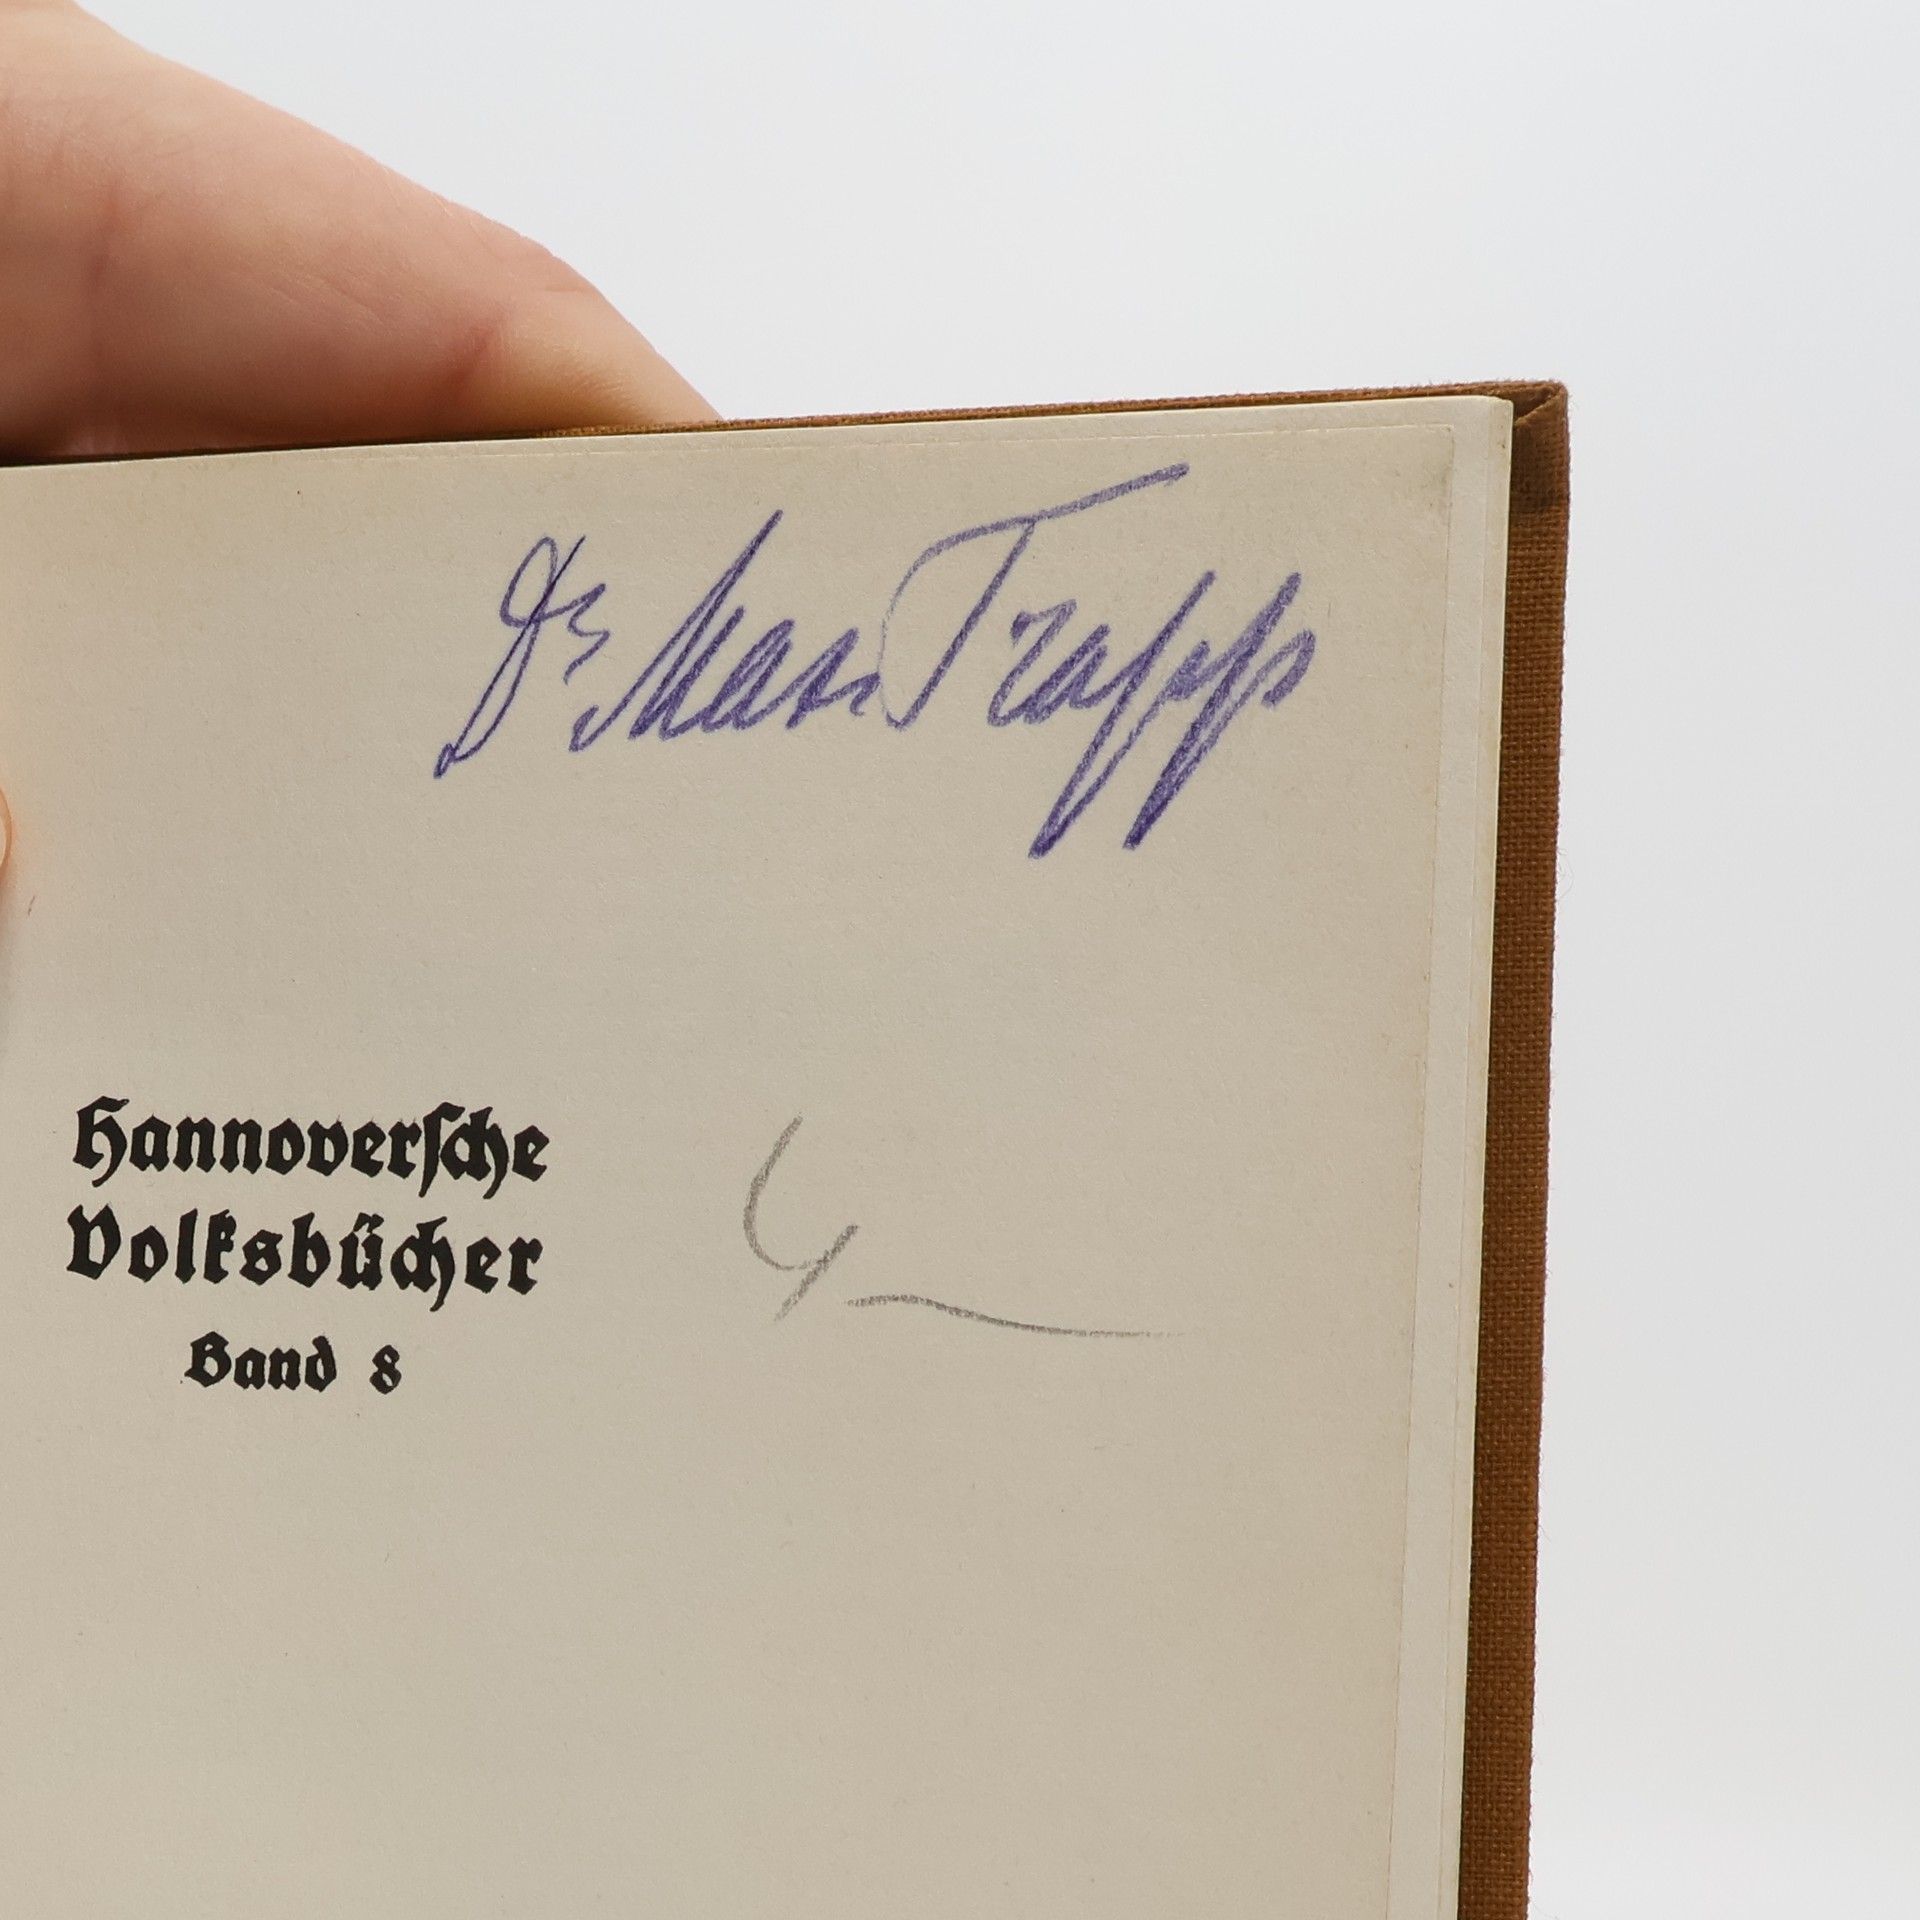 Dr Max Trapp
Hannoversche
Volksbücher
4
Band 8